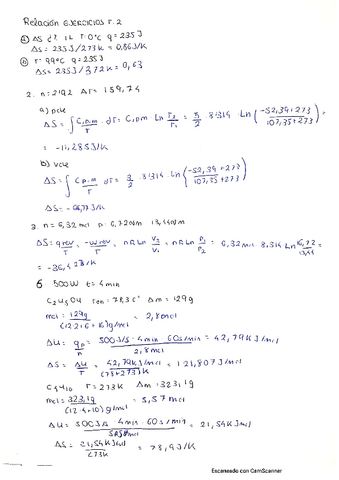 Relación EJERCICIOS T.2
a) ΔS c? 1L T: 0ºC q = 235J
ΔS = 235J/273K = 0,86J/K
b) T: 99ºC q = 235J
ΔS = 235J/372K = 0,63
2. n = 2'92 ΔT = 159,74
a) p cte
ΔS = ∫ C p,m / T · dT = C p,m · Ln T2/T1 = 5/2 · 8'314 · Ln (-52,39+273 / 107,35+273) =
= -11,285J/K
b) V cte
ΔS = ∫ C p,m / T dT = 3/2 · 8'314 · Ln (-52,39+273 / 107,35+273)
ΔS = J/K
3. n = 6,32 mol p: 6,72 13,44
ΔS = q rev / T = -w rev / T = n R Ln V2/V1 = n R Ln P1/P2 = 6,32 mol · 8,314 Ln =
= -36,42J/K
6 500W t = 4 min
C2H5OH Teb = 78'3ºC Δm = 129g
mol = 129g / (12·2+6+16) g/mol = 2,8 mol
ΔH = qp / n = 500J/s · 4 min · 60s/min / 2,8 mol = 42,79KJ/mol
ΔS = ΔH / T = 42,79KJ/mol / (78+273)K = 121,807J/mol
C4H10 T = 273K Δm = 323,1g
mol = 323,1g / (12·4+10) g/mol = 5,57 mol
ΔH = 500J/s · 4 min · 60s/min / mol = 21,54KJ/mol
ΔS = 21,54KJ/mol / 273K = 78,9J/K
Escaneado con CamScanner